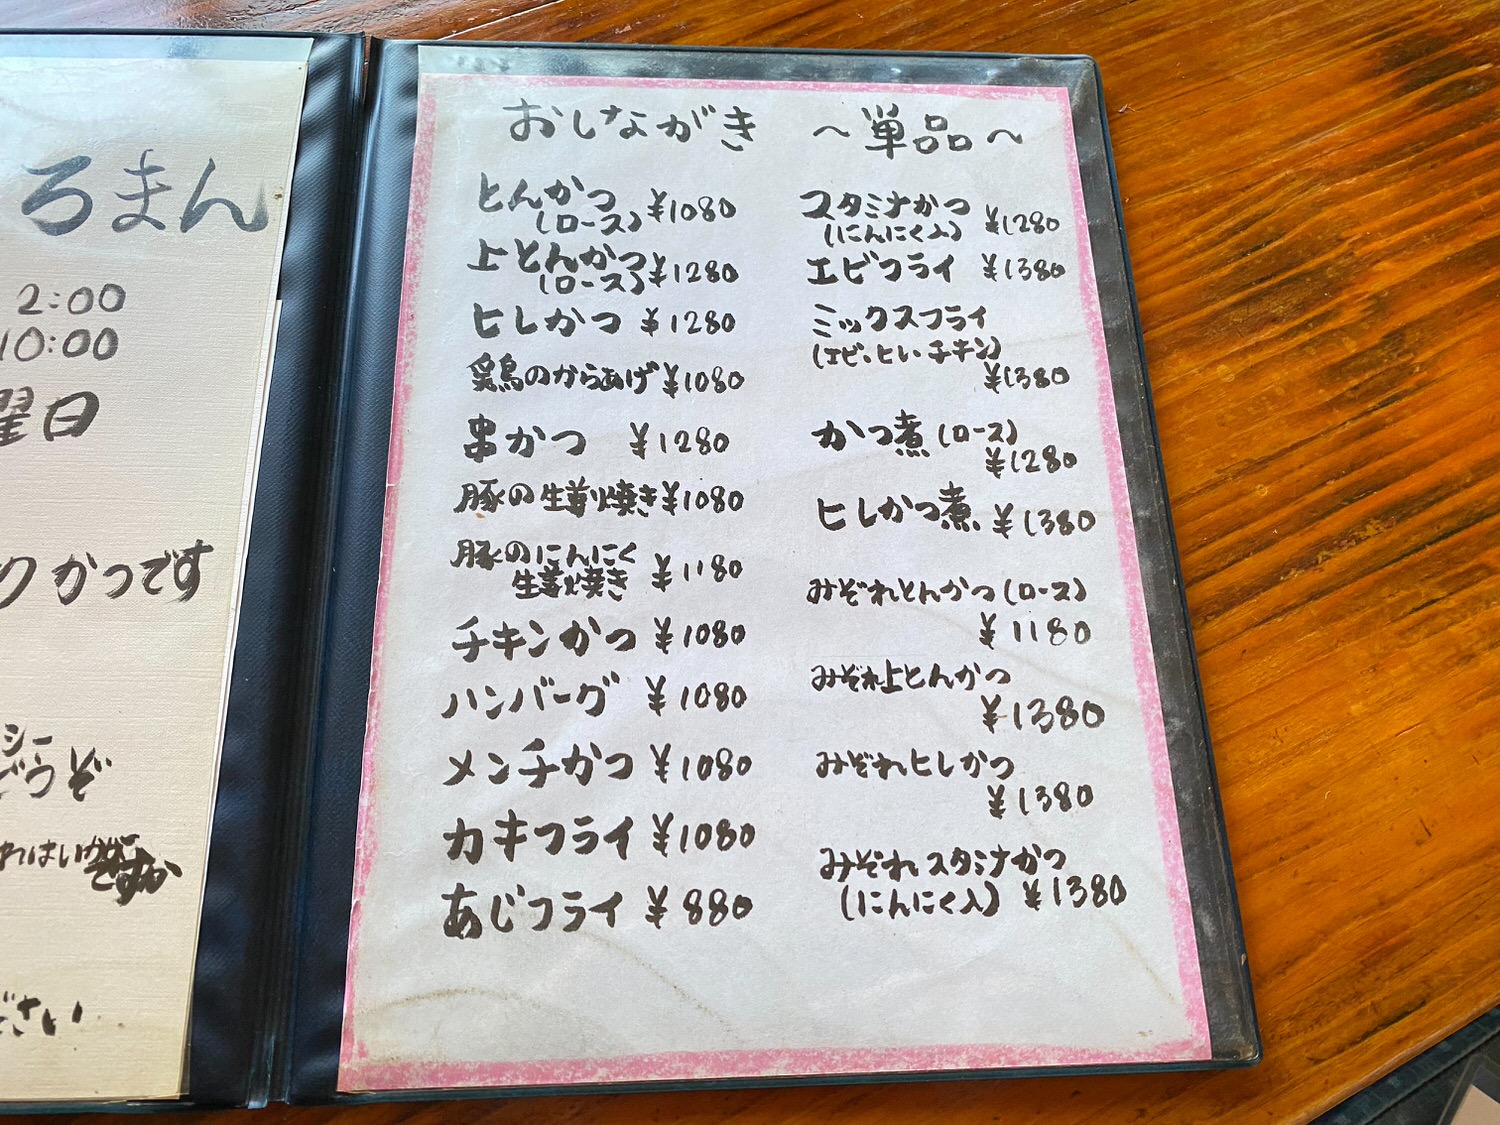 ろまん
2:00
10:00
曜日
のかつです
シー
どうぞ
ればいかが
ですか
ださい
おしながき ～単品～
とんかつ
(ロース) ¥1080
上とんかつ
(ロース) ¥1280
ヒレかつ ¥1280
若鶏のからあげ ¥1080
串かつ ¥1280
豚の生姜焼き ¥1080
豚のにんにく
生姜焼き ¥1180
チキンかつ ¥1080
ハンバーグ ¥1080
メンチかつ ¥1080
カキフライ ¥1080
あじフライ ¥880
スタミナかつ
(にんにく入) ¥1280
エビフライ ¥1380
ミックスフライ
(エビ、ヒレ、チキン)
¥1380
かつ煮(ロース)
¥1280
ヒレかつ煮 ¥1380
みぞれとんかつ(ロース)
¥1180
みぞれ上とんかつ
¥1380
みぞれヒレかつ
¥1380
みぞれスタミナかつ
(にんにく入) ¥1380